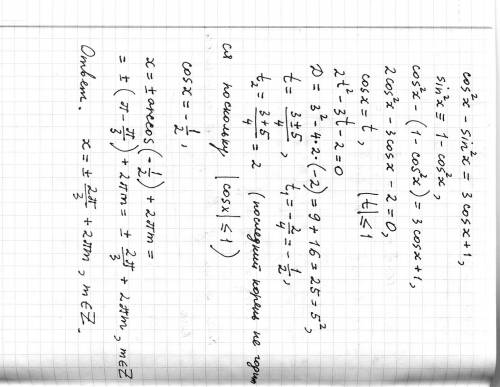 cos²x - sin²x = 3cosx + 1,
sin²x = 1 - cos²x,
cos²x - (1 - cos²x) = 3cosx + 1,
2cos²x - 3cosx - 2 = 0,
cosx = t, |t| ≤ 1
2t² - 3t - 2 = 0
D = 3² - 4·2·(-2) = 9 + 16 = 25 = 5²,
t = (3±5)/4, t₁ = -2/4 = -1/2,
t₂ = (3+5)/4 = 2 (последний корень не годит
ся поскольку |cosx| ≤ 1)
cosx = -1/2,
x = ± arccos(-1/2) + 2πm =
= ± (π - π/3) + 2πm = ± 2π/3 + 2πm, m∈Z
Ответ. x = ± 2π/3 + 2πm, m∈Z.